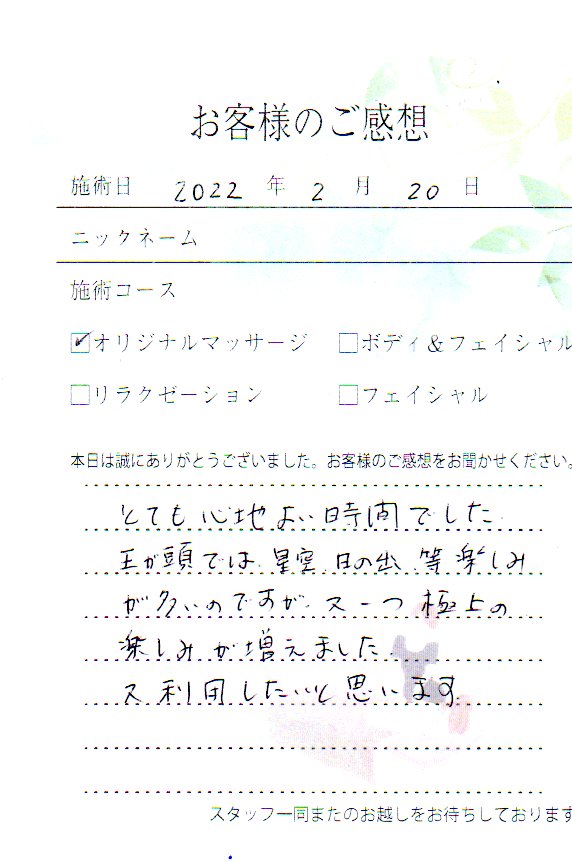 お客様のご感想
施術日 2022 年 2 月 20 日
ニックネーム
施術コース
オリジナルマッサージ ボディ&フェイシャル
リラクゼーション フェイシャル
本日は誠にありがとうございました。お客様のご感想をお聞かせください。
とても心地よい時間でした
王が頭では、星空、日の出、等楽しみ
が多いのですが、又一つ極上の
楽しみが増えました。
又利用したいと思います
スタッフ一同またのお越しをお待ちしております